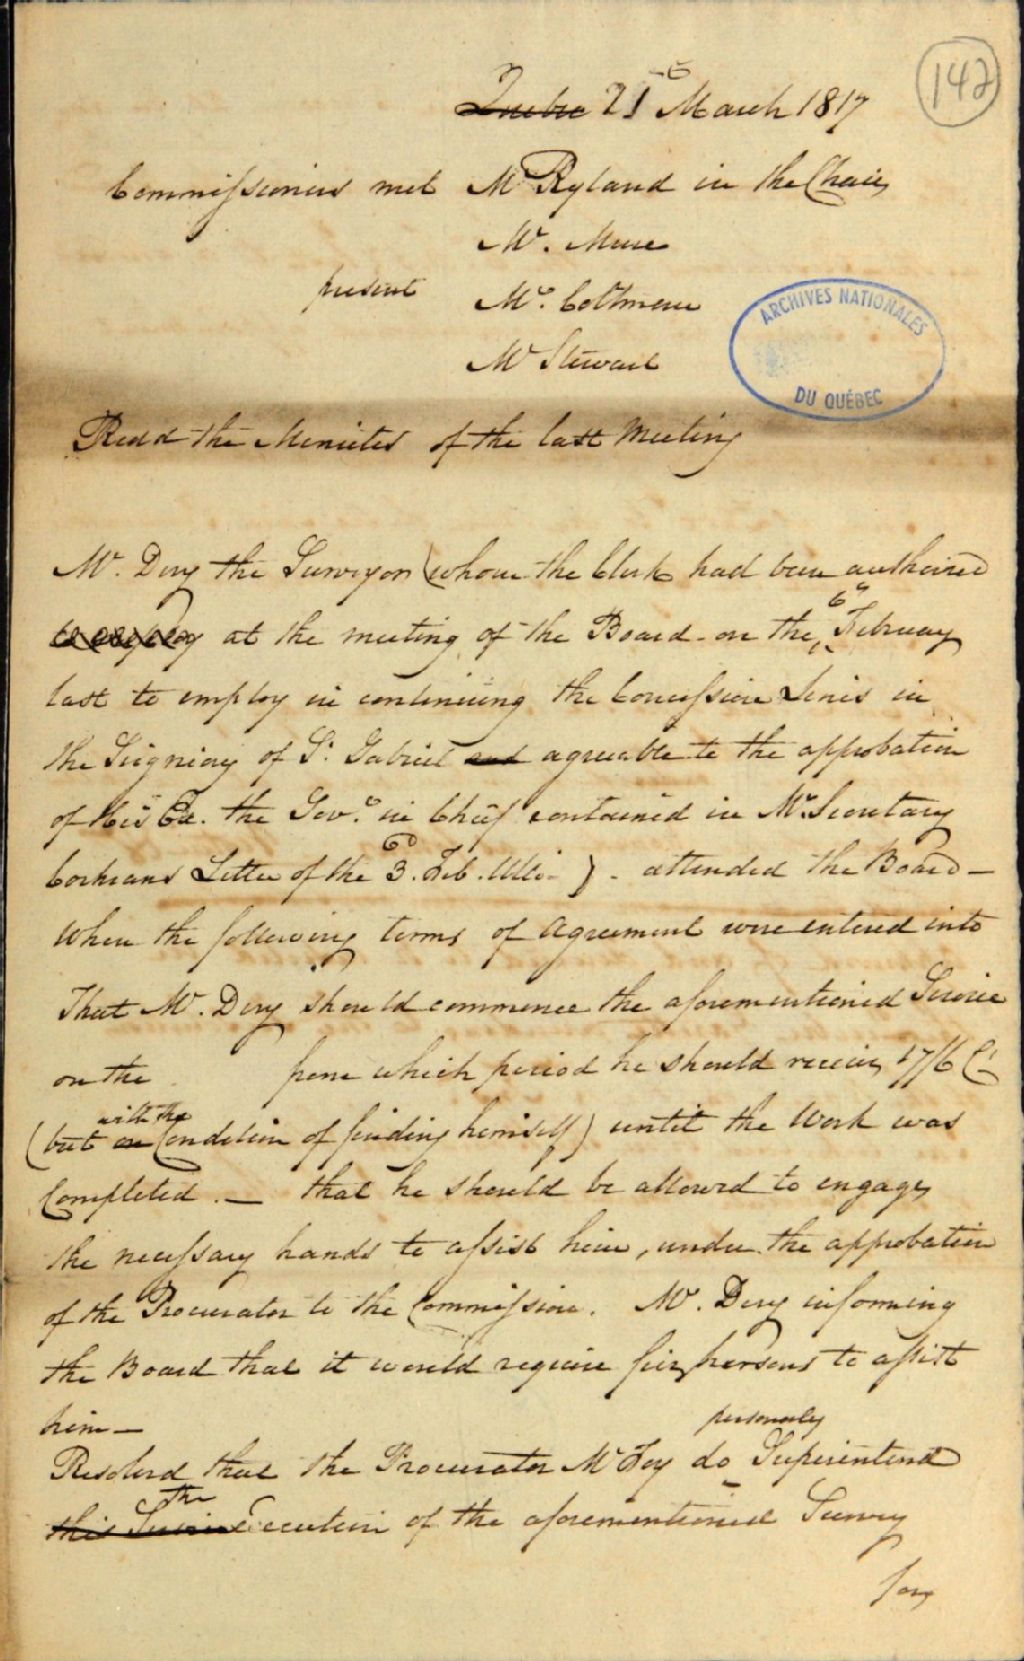 142
Quebec 21st March 1817
Commissioners met Mr Ryland in the Chair
Mr. Mure
present Mr. Coltman
Mr Stewart
ARCHIVES NATIONALES
DU QUÉBEC
Read the Minutes of the last Meeting
Mr. Dery the Surveyor (whom the Clerk had been authorized
to employ at the meeting of the Board on the 6th February
last to employ in continuing the Concession Lines in
the Seigniory of St. Gabriel and agreeable to the approbation
of His Ex. the Govr. in Chief contained in Mr. Secretary
Cochrans Letter of the 3d. Feb. Ulto.) - attended the Board -
When the following terms of Agreement were entered into
That Mr. Dery should commence the aforementioned Service
on the from which period he should receive 17/6
(but on with the Condition of finding himself) until the Work was
Completed. - that he should be allowed to engage
the necessary hands to assist him, under the approbation
of the Procurator to the Commission. Mr. Dery informing
the Board that it would require persons to assist
him -
Resolved that the Procurator Mr Foy do personally Superintend
this Service the Execution of the aforementioned Survey
for